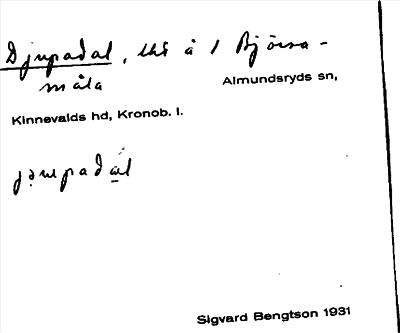 Djupadal, lht å 1 Björsa-
måla Almundsryds sn,
Kinnevalds hd, Kronob. l.
Sigvard Bengtson 1931